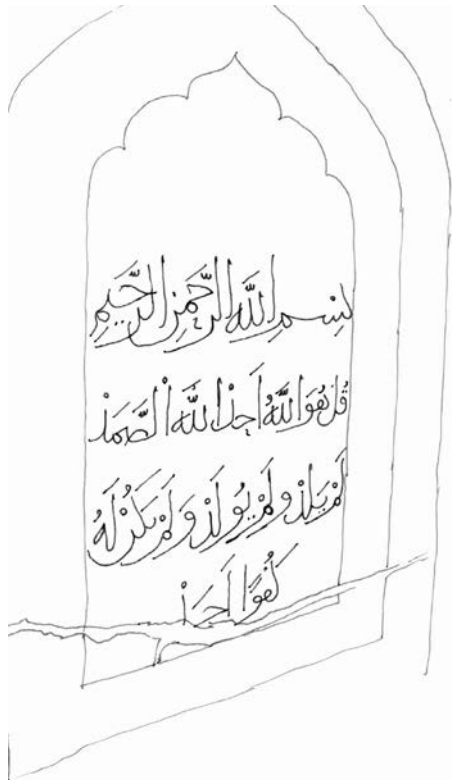 بِسْمِ اللَّهِ الرَّحْمٰنِ الرَّحِيمِ
قُلْ هُوَ اللَّهُ أَحَدْ اللَّهُ الصَّمَدْ
لَمْ يَلِدْ وَلَمْ يُولَدْ وَلَمْ يَكُنْ لَهُ
كُفُوًا أَحَدْ